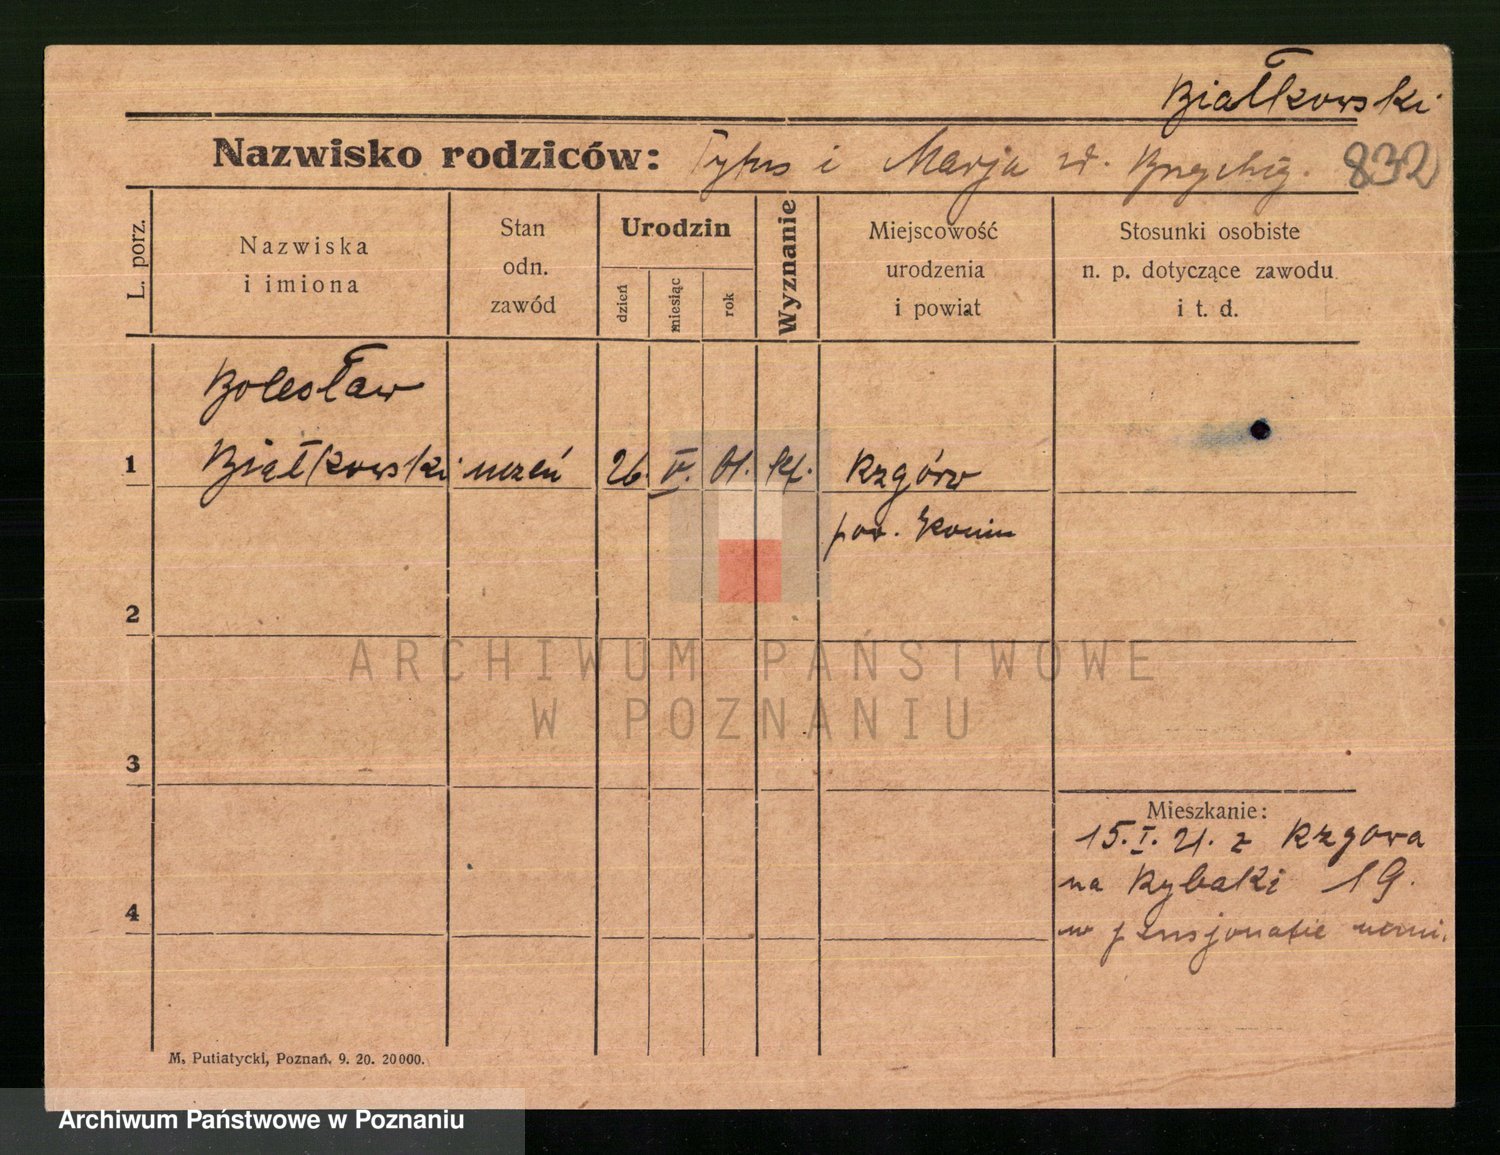 Białkowski
Nazwisko rodziców: Tytus i Marja zd.
832
L. porz.
Nazwiska
i imiona
Stan
odn.
zawód
Urodzin
dzień
miesiąc
rok
Wyznanie
Miejscowość
urodzenia
i powiat
Stosunki osobiste
n. p. dotyczące zawodu
i t. d.
Bolesław
1 Białkowski uczeń 26. V. 01. kf. Rzgów
pow. Konin
2
ARCHIWUM PAŃSTWOWE
W POZNANIU
3
Mieszkanie:
15. I. 21. z Rzgowa
na Rybaki 19.
4
w pensjonacie uczni.
M. Putiatycki, Poznań. 9. 20. 20000.
Archiwum Państwowe w Poznaniu